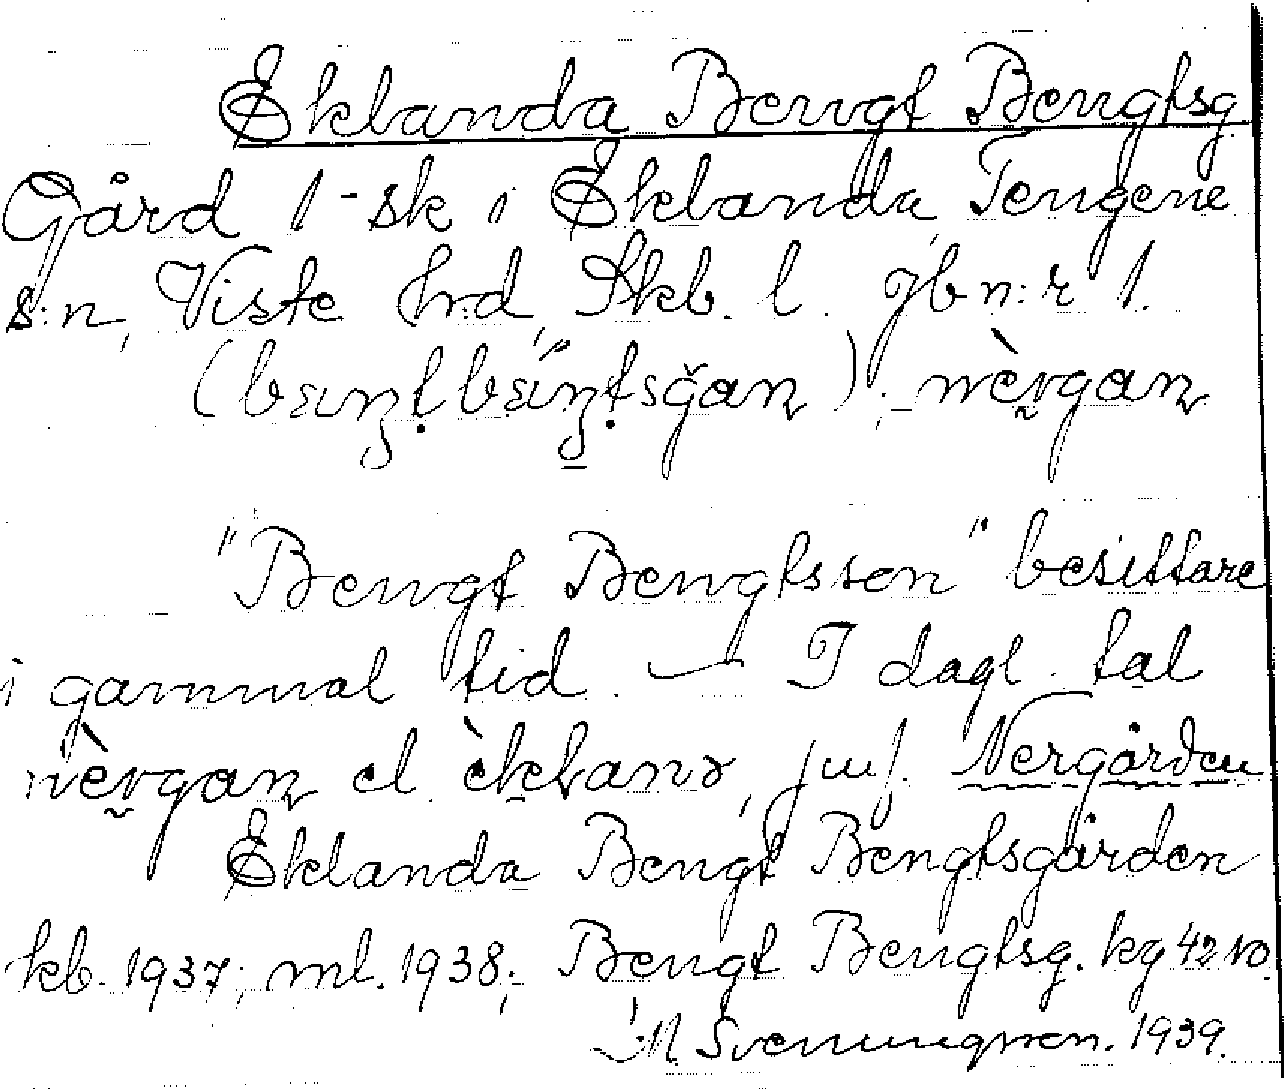 Eklanda Bengt Bengtsg.
Gård 1-sk i Eklanda, Tengene
s:n, Viste hrd, Skb. l. Jbn:r 1.
"Bengt Bengtsson" besittare
i gammal tid. — I dagl. tal
nèrgaɳ el. èkḷanɂ, jmf. Nergården
Eklanda Bengt Bengtsgården
kb. 1937; ml. 1938; Bengt Bengtsg. kg 42 NO.
M. Svenungsson. 1939.